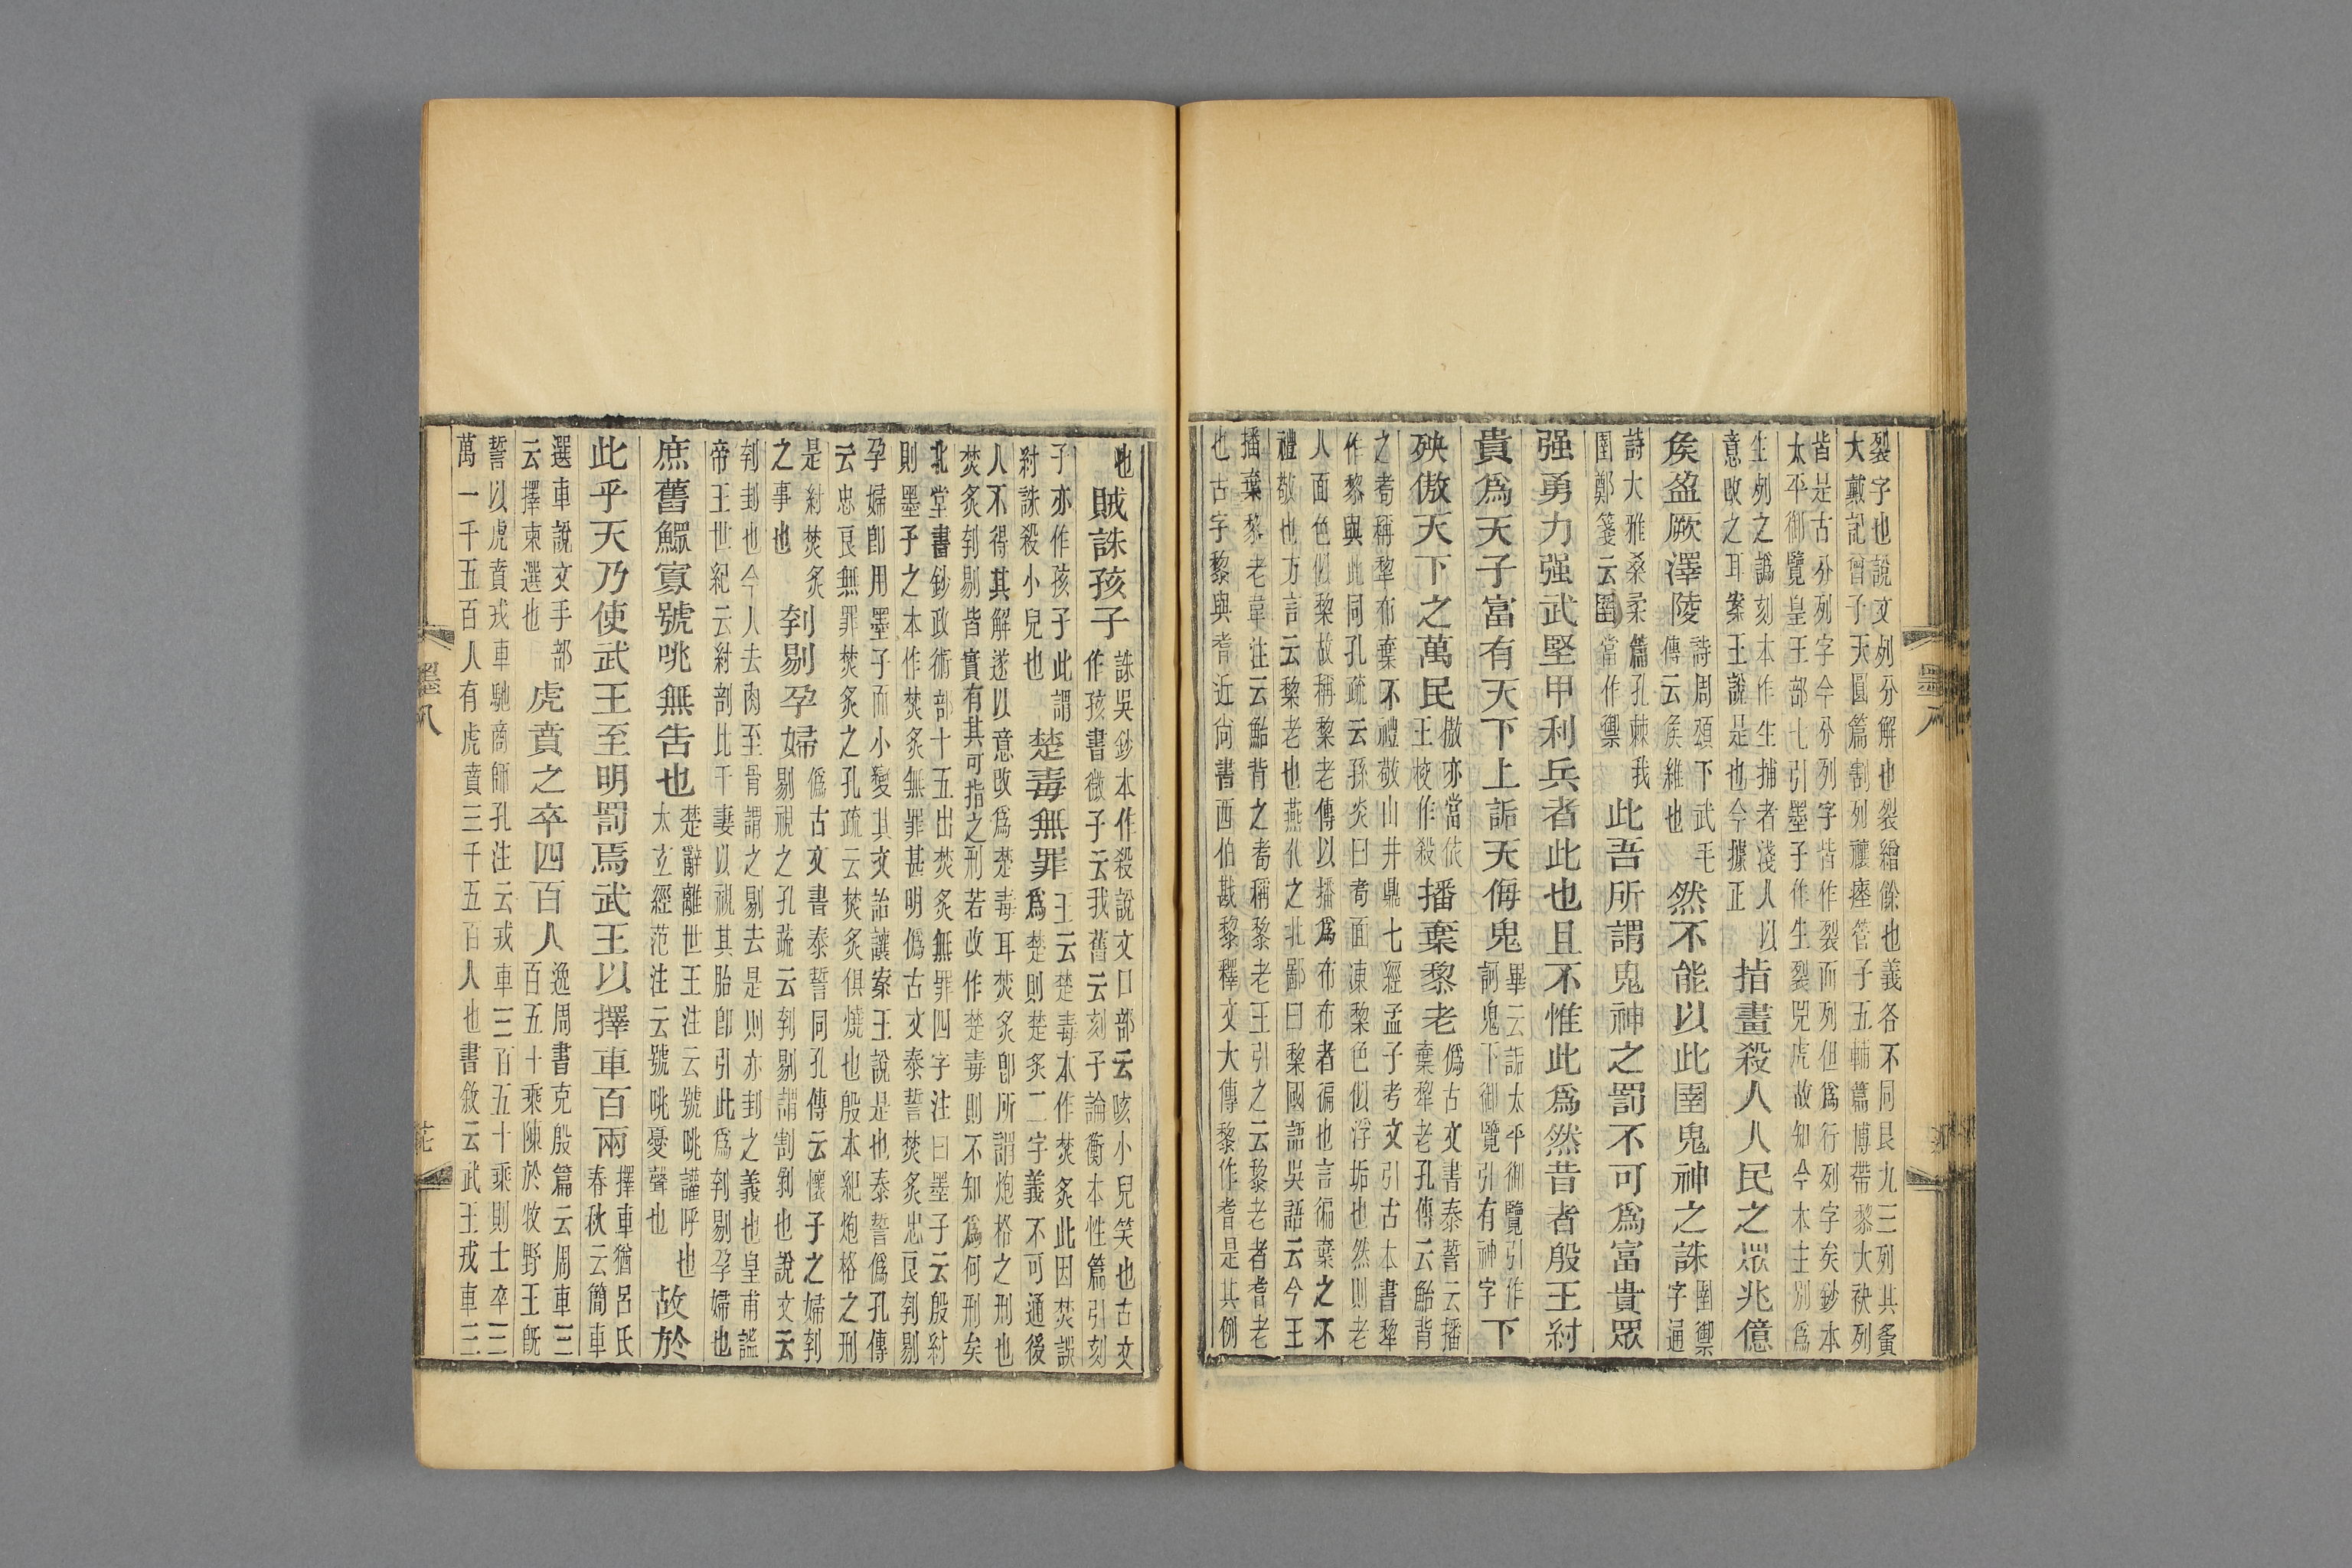 裂字也說文列分解也裂繒餘也義各不同艮九三列其夤
大戴記曾子天圓篇割列禳瘞管子五輔篇博帶黎大袂列
皆是古分列字今分列字皆作裂而列但爲行列字矣鈔本
太平御覽皇王部七引墨子作生裂兕虎故知今本主別爲
生列之譌刻本作生捕者淺人以
意改之耳案王說是也今據正
指畫殺人人民之眾兆億
矦盈厥澤陵
詩周頌下武毛
傳云矦維也
然不能以此圉鬼神之誅
圉禦
字通
詩大雅桑柔篇孔棘我
圉鄭箋云圉當作禦
此吾所謂鬼神之罰不可爲富貴眾
强勇力强武堅甲利兵者此也且不惟此爲然昔者殷王紂
貴爲天子富有天下上詬天侮鬼
畢云詬太平御覽引作
訶鬼下御覽引有神字
下
殃傲天下之萬民
傲亦當依
王校作殺
播棄黎老
僞古文書泰誓云播
棄犂老孔傳云鮐背
之耇稱犂布棄不禮敬山井鼎七經孟子考文引古本書犂
作黎與此同孔疏云孫炎曰耇面凍黎色似浮垢也然則老
人面色似黎故稱黎老傳以播爲布布者徧也言徧棄之不
禮敬也方言云黎老也燕代之北鄙曰黎國語吳語云今王
播棄黎老韋注云鮐背之耇稱黎老王引之云黎老者耆老
也古字黎與耆近尚書西伯戡黎釋文大傳黎作耆是其例
墨八
也
賊誅孩子
誅吳鈔本作殺說文口部云咳小兒笑也古文
作孩書微子云我舊云刻子論衡本性篇引刻
子亦作孩子此謂
紂誅殺小兒也
楚毒無罪
王云楚毒本作焚炙此因焚誤
爲楚則楚炙二字義不可通後
人不得其解遂以意改爲楚毒耳焚炙卽所謂炮格之刑也
焚炙刳剔皆實有其可指之刑若改作楚毒則不知爲何刑矣
北堂書鈔政術部十五出焚炙無罪四字注曰墨子云殷紂
則墨子之本作焚炙無罪甚明僞古文泰誓焚炙忠良刳剔
孕婦卽用墨子而小變其文詒讓案王說是也泰誓僞孔傳
云忠良無罪焚炙之孔疏云焚炙俱燒也殷本紀炮格之刑
是紂焚炙
之事也
刳剔孕婦
僞古文書泰誓同孔傳云懷子之婦刳
剔視之孔疏云刳剔謂割剝也說文云
刳刲也今人去肉至骨謂之剔去是則亦刲之義也皇甫謐
帝王世紀云紂剖比干妻以視其胎卽引此爲刳剔孕婦也
庶舊鰥寡號咷無告也
楚辭離世王注云號咷讙呼也
太玄經范注云號咷憂聲也
故於
此乎天乃使武王至明罰焉武王以擇車百兩
擇車猶呂氏
春秋云簡車
選車說文手部
云擇柬選也
虎賁之卒四百人
逸周書克殷篇云周車三
百五十乘陳於牧野王旣
誓以虎賁戎車馳商師孔注云戎車三百五十乘則士卒三
萬一千五百人有虎賁三千五百人也書敘云武王戎車三
墨八